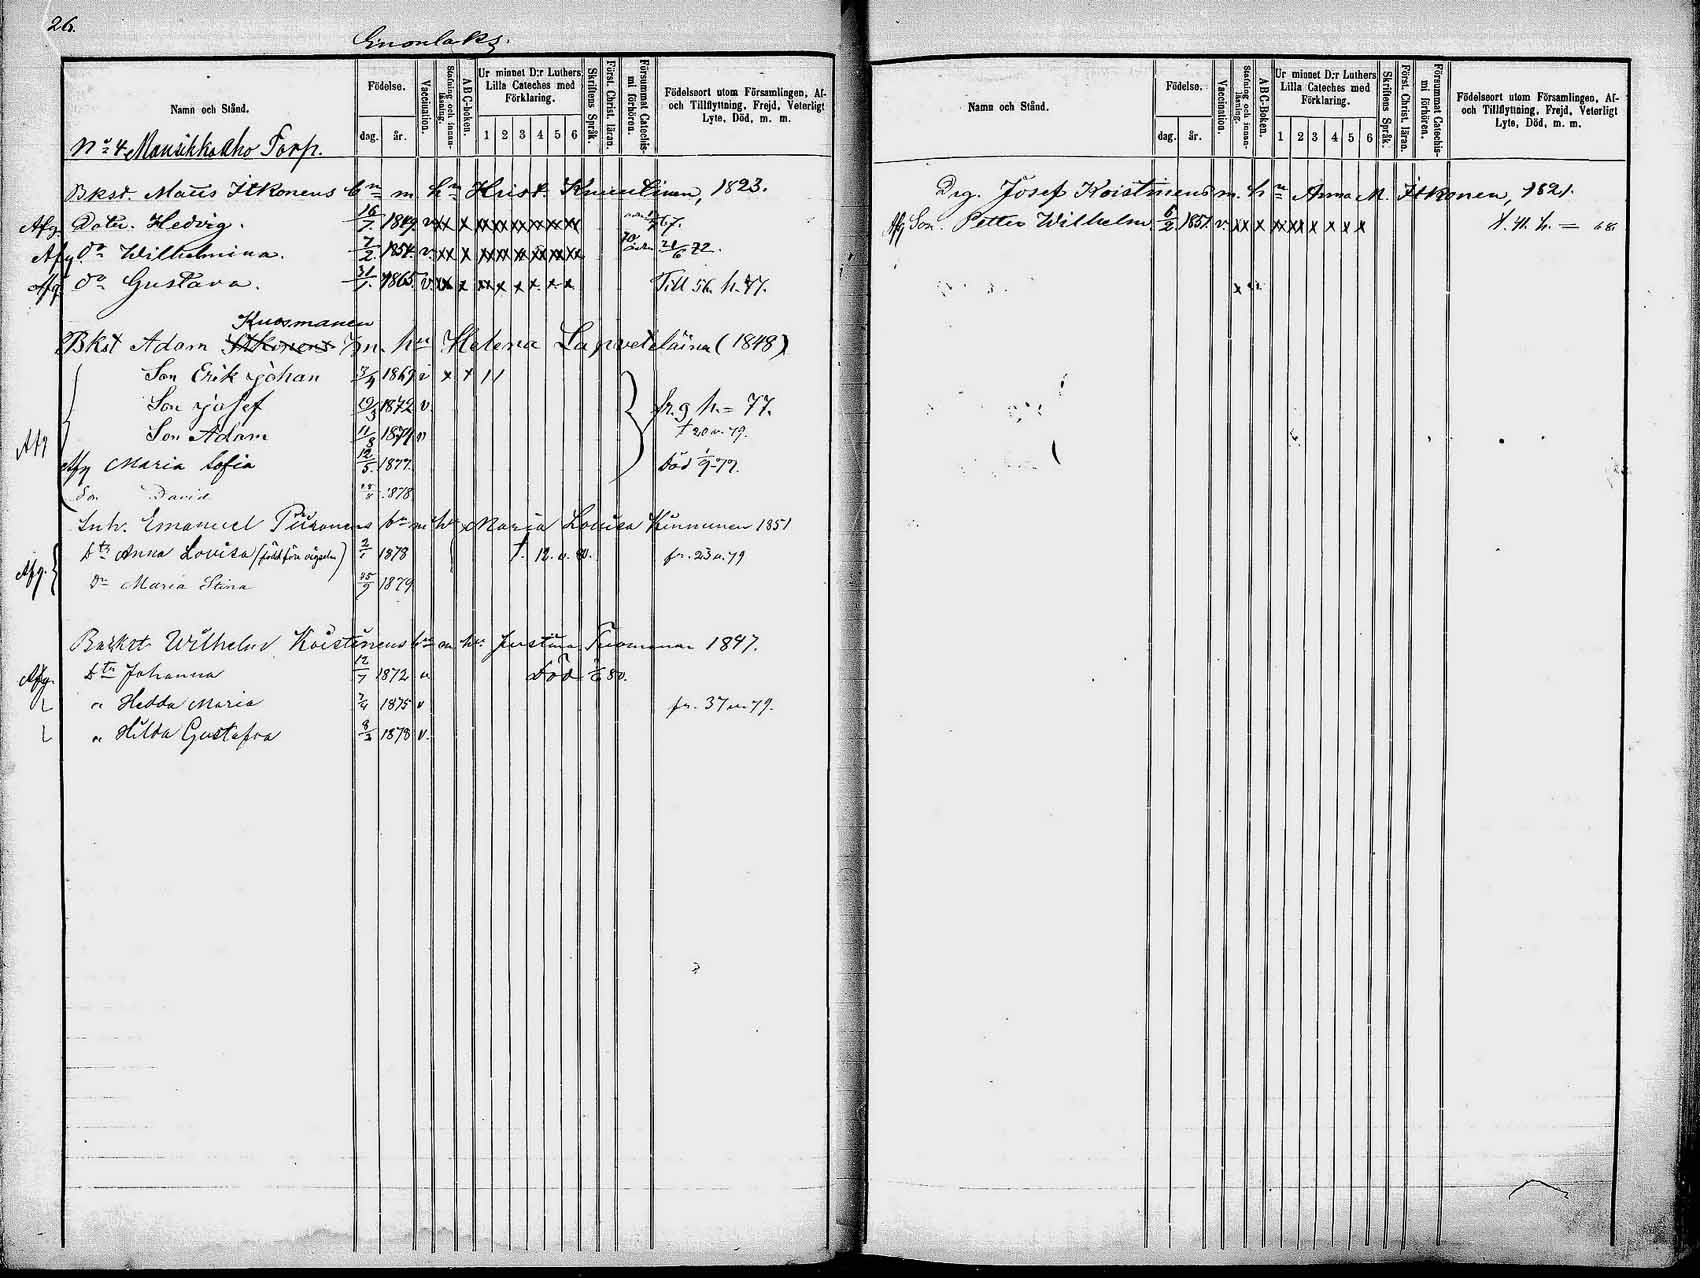 26.
Enonlaks.
Namn och Stånd.
Födelse.
dag. år.
Vaccination.
Stafning och innan-läsning.
ABC-boken.
Ur minnet D:r Luthers Lilla Cateches med Förklaring.
1 2 3 4 5 6
Skriftens Språk.
Först. Christ. läran.
Försummat Catechis-mi förhören.
Födelseort utom Församlingen, Af- och Tillflyttning, Frejd, Veterligt Lyte, Död, m. m.
No 4 Mansikkaaho Torp.
Bkst. Mats Itkonens bn m hn Krist. 1823.
Afg. Dotter. Hedvig. 16/7. 1849. v. xx x xx xx xx xx xx xx 67.
Afg. Do Wilhelmina. 7/2. 1854. v. xx x xx xx xx xx xx xx 21/6 72.
Afg. Do Gustava. 31/1. 1865. v. xx x xx x x x x x Till 56. h. 77.
Kuosmanen
Bkst Adam Itkonens m. hu Helena Lapveteläinen (1848)
Son Erik Johan 3/4 1869 v x x 11
Son Josef 19/3 1872 v. fr. 9 h = 77.
Afg Son Adam 11/8 1874 v † 20 u. 79.
Afg Maria Sofia 12/5. 1877. Död 1/9 77.
Son David 1878
Inh. Emanuel Piironens bn m hn Maria Lovisa Kinnunen 1851
Afg. Dtr Anna Lovisa (född före vigseln) 2/1 1878 †. 12. u. 80. fr. 23 u. 79
Do Maria Stina 25/9 1879
Backst. Wilhelm Koistinens bn m hu Justina Tuomainen 1847.
Afg. Dtr Johanna 12/7 1872 v Död 80.
" Hedda Maria 7/4 1875 v fr. 37 u. 79.
" Hilda Gustafva 8/3 1878 v.
Namn och Stånd.
Födelse.
dag. år.
Vaccination.
Stafning och innan-läsning.
ABC-boken.
Ur minnet D:r Luthers Lilla Cateches med Förklaring.
1 2 3 4 5 6
Skriftens Språk.
Först. Christ. läran.
Försummat Catechis-mi förhören.
Födelseort utom Församlingen, Af- och Tillflyttning, Frejd, Veterligt Lyte, Död, m. m.
Drg. Josef Koistinens m. hn Anna M. Itkonen, 1821.
Afg Son. Petter Wilhelm. 6/2 1851. v. xx x xx xx x x x x